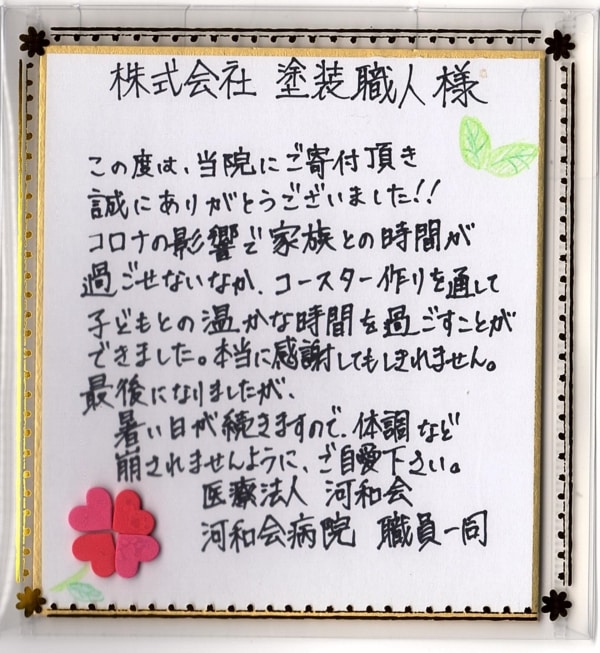 株式会社 塗装職人 様
この度は、当院にご寄付頂き
誠にありがとうございました!!
コロナの影響で家族との時間が
過ごせないなか、コースター作りを通して
子どもとの温かな時間を過ごすことが
できました。本当に感謝してもしきれません。
最後になりましたが、
暑い日が続きますので、体調など
崩されませんように、ご自愛下さい。
医療法人 河和会
河和会病院 職員一同